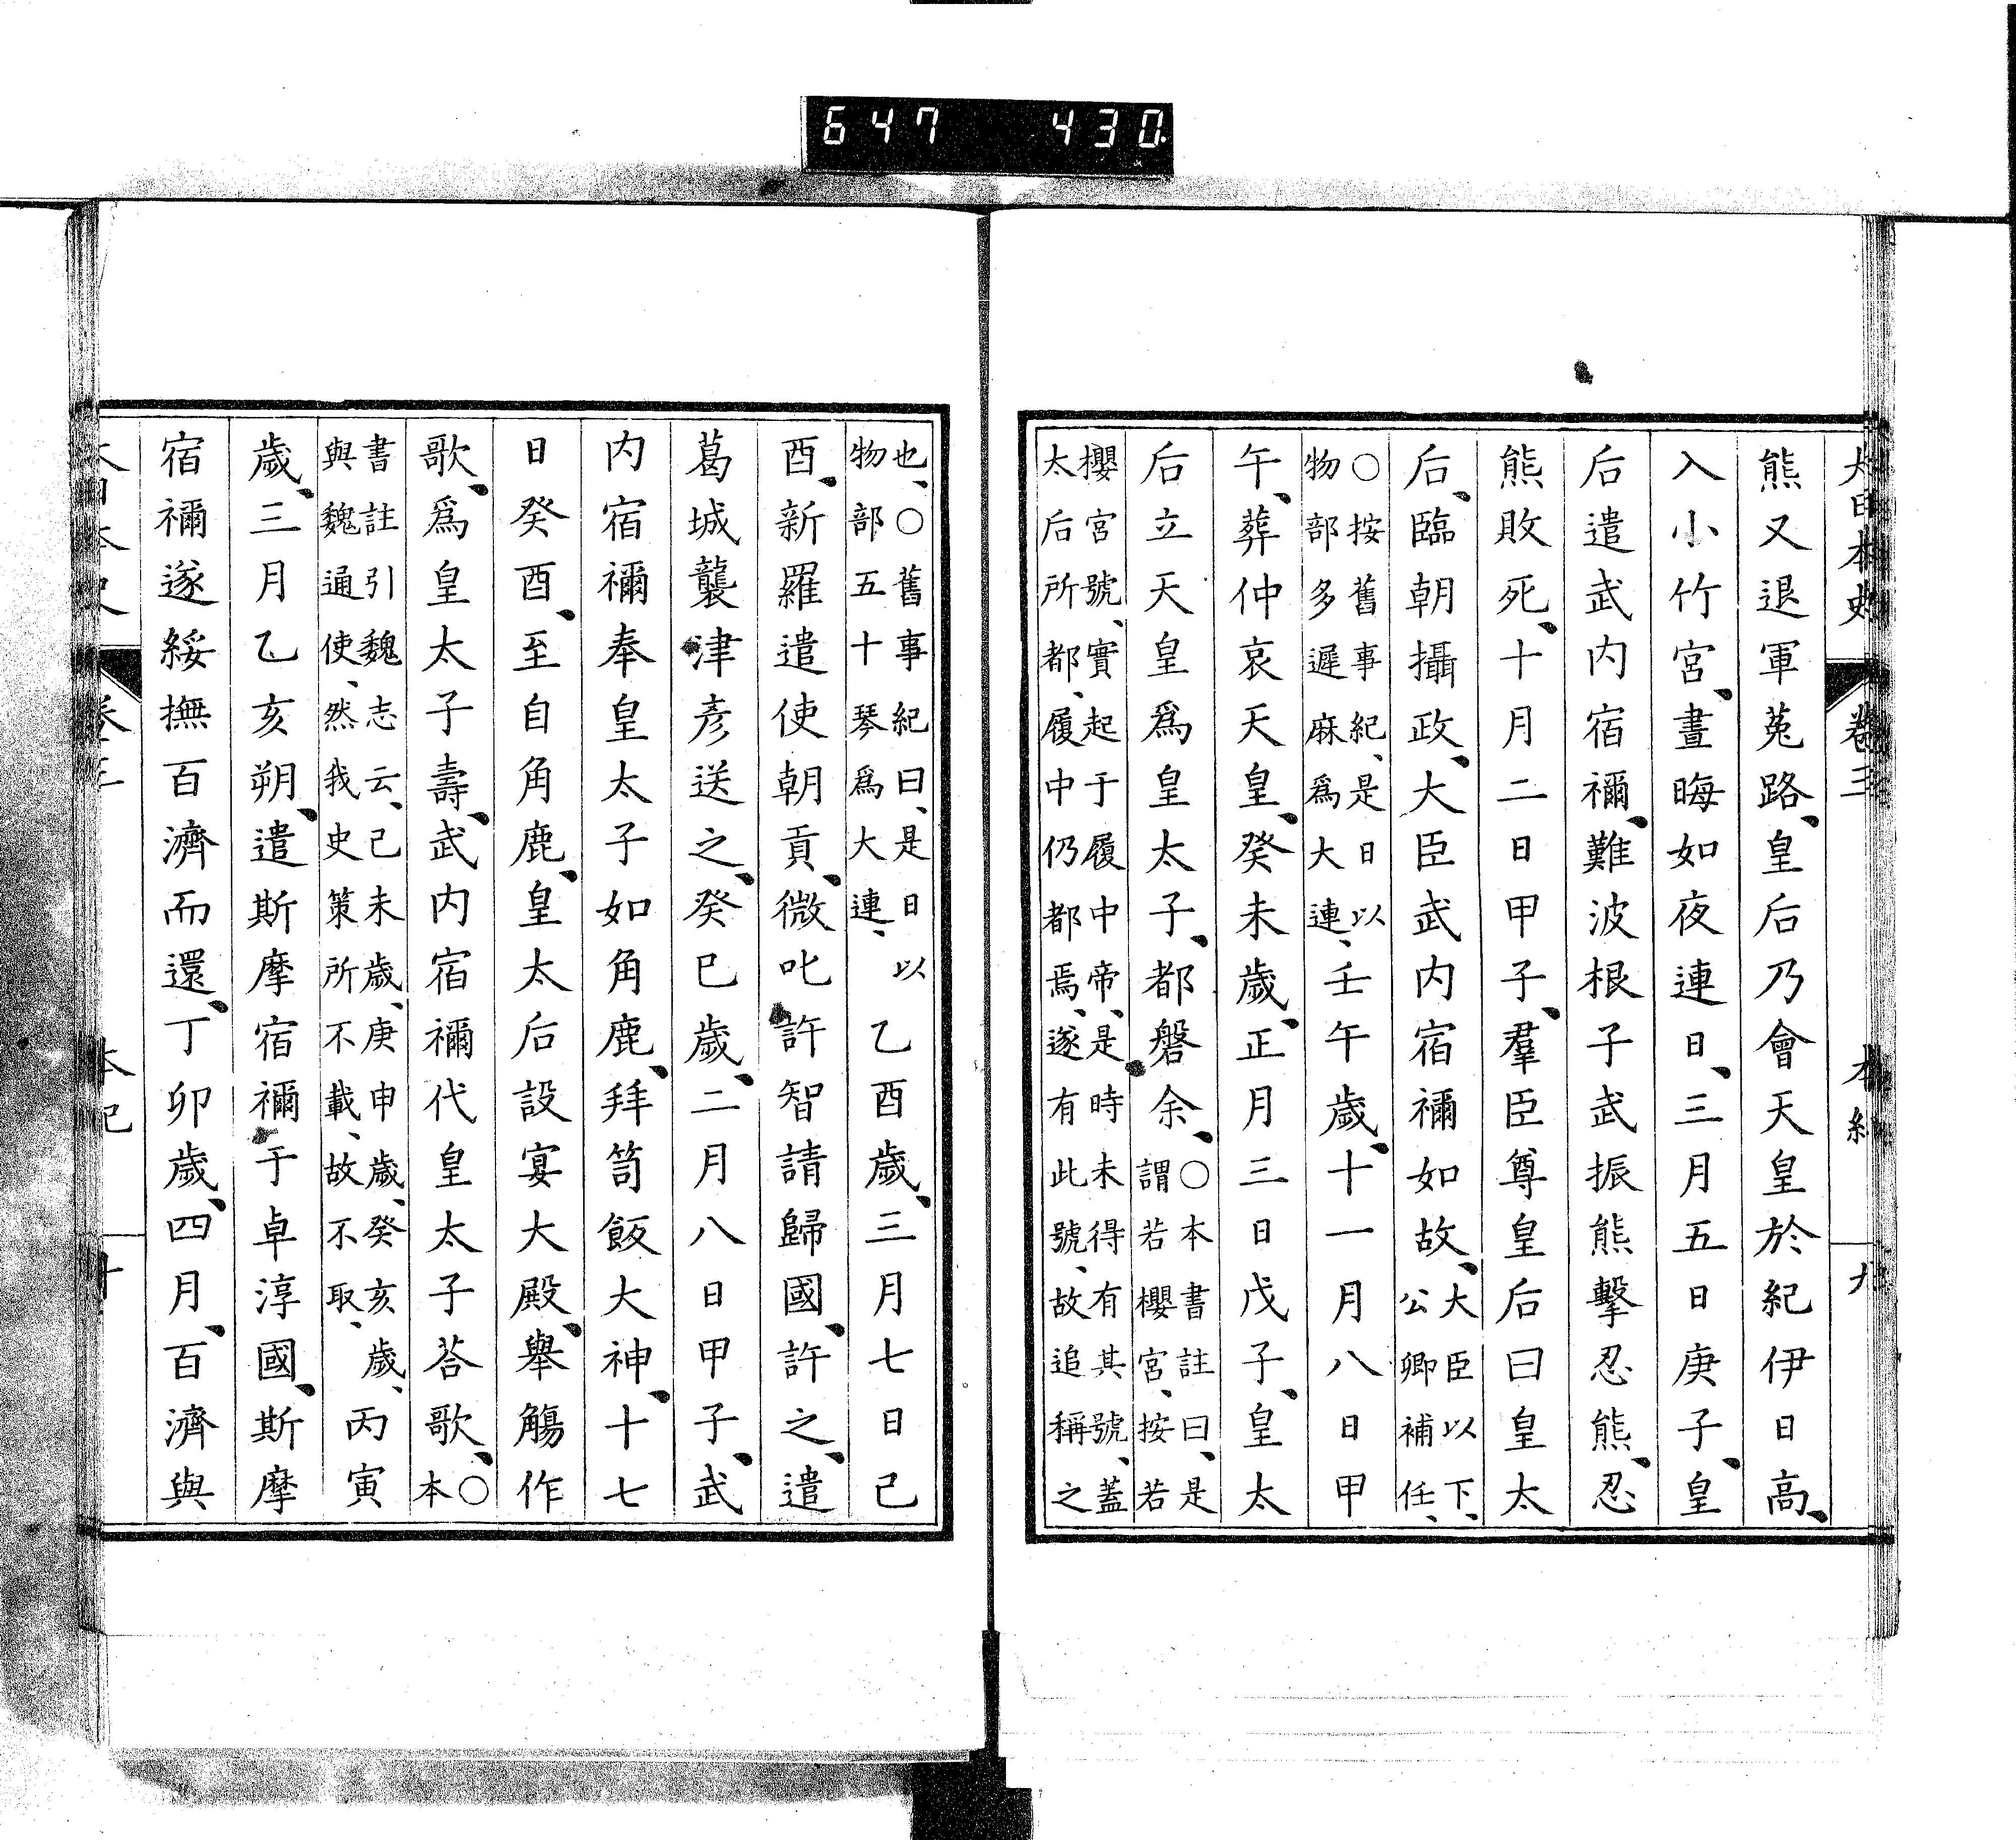 647 430
大日本史 卷三 本紀 九
熊又退軍菟路、皇后乃會天皇於紀伊日高、
入小竹宮、晝晦如夜連日、三月五日庚子、皇
后遣武内宿禰、難波根子武振熊擊忍熊、忍
熊敗死、十月二日甲子、羣臣尊皇后曰皇太
后、臨朝攝政、大臣武内宿禰如故、大臣以下、公卿補任、
〇按舊事紀、是日以物部多遲麻爲大連、壬午歲、十一月八日甲
午、葬仲哀天皇、癸未歲、正月三日戊子、皇太
后立天皇爲皇太子、都磐余、〇本書註曰、是謂若櫻宮、按若
櫻宮號、實起于履中帝、是時未得有其號、蓋太后所都、履中仍都焉、遂有此號、故追稱之
也、〇舊事紀曰、是日以物部五十琴爲大連、乙酉歲、三月七日己
酉、新羅遣使朝貢、微叱許智請歸國、許之、遣
葛城襲津彥送之、癸巳歲、二月八日甲子、武
内宿禰奉皇太子如角鹿、拜笥飯大神、十七
日癸酉、至自角鹿、皇太后設宴大殿、舉觴作
歌、爲皇太子壽、武内宿禰代皇太子荅歌、〇本
書註引魏志云、己未歲、庚申歲、癸亥歲、與魏通使、然我史策所不載、故不取、丙寅
歲、三月乙亥朔、遣斯摩宿禰于卓淳國、斯摩
宿禰遂綏撫百濟而還、丁卯歲、四月、百濟與